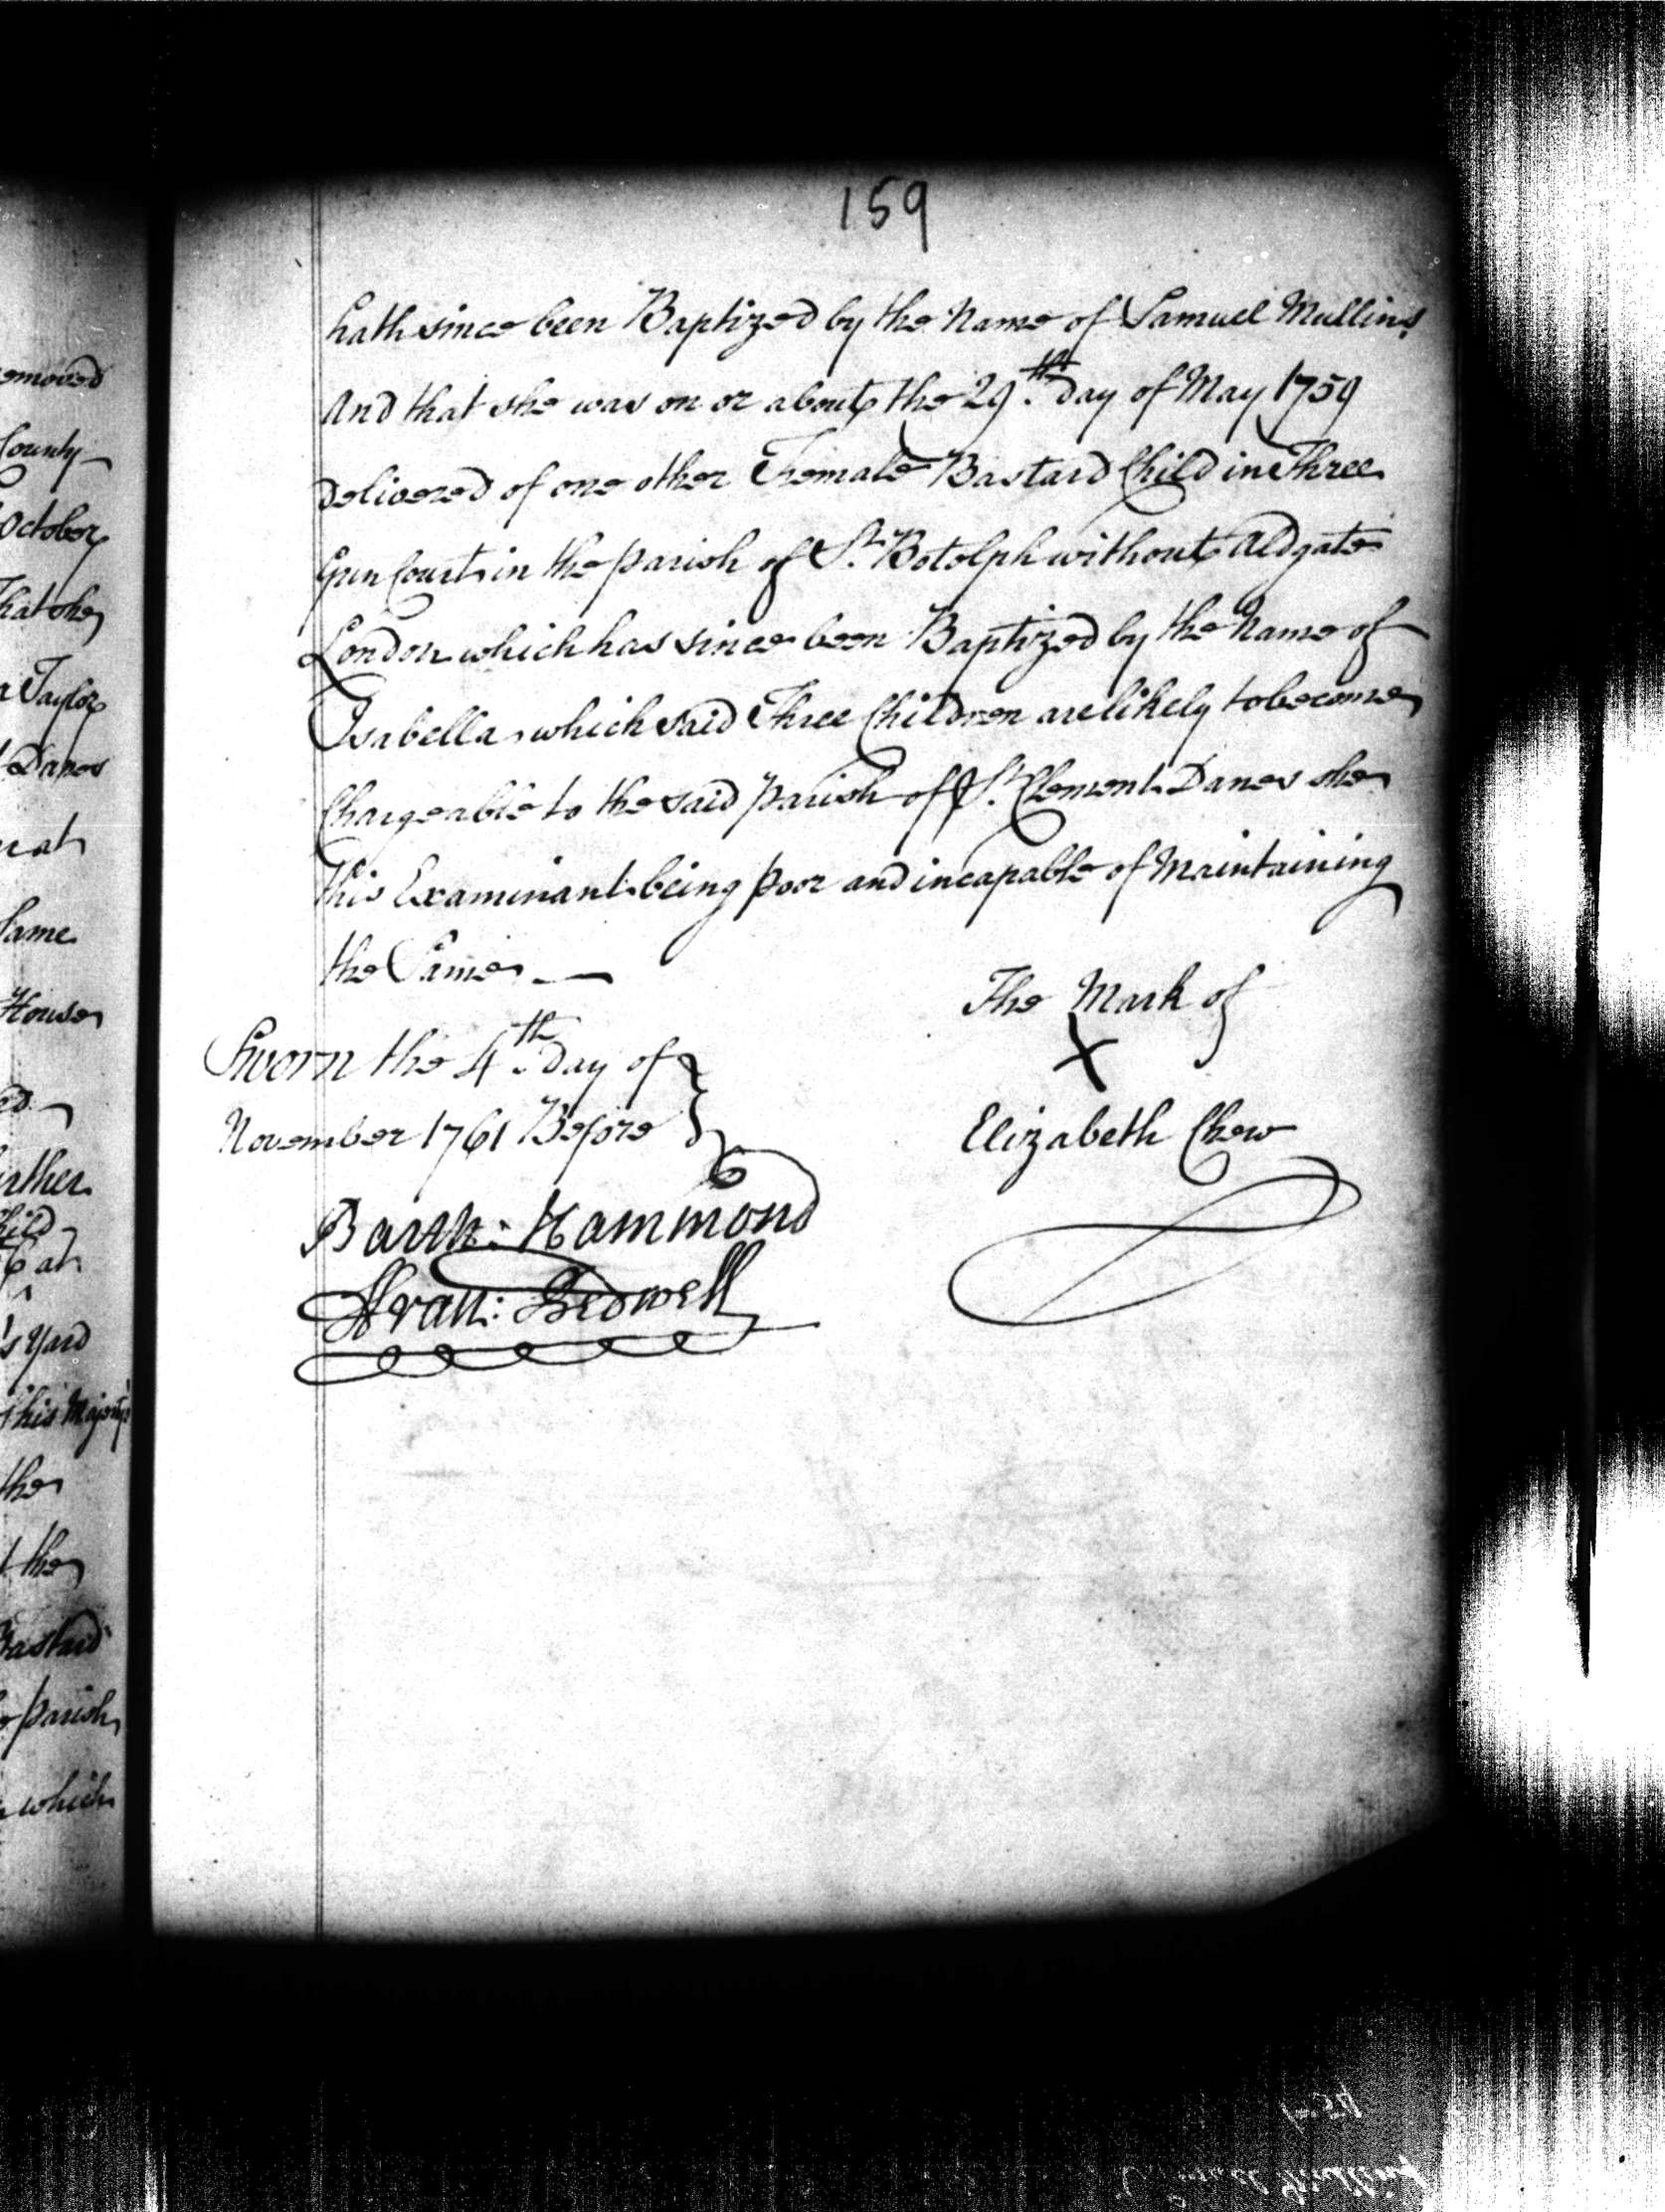 159
hath since been Baptized by the Name of Samuel Mullins
And that she was on or about the 29th. Day of May 1759
Delivered of one other Female Bastard Child in Three
Gun Court in the parish of St. Botolph without Aldgate
London which has since been Baptized by the Name of
Isabella, which said Three Children are likely to become
Chargeable to the said parish of St. Clement Danes she
this Examinant being poor and incapable of Maintaining
the Same
The Mark of
X
Elizabeth Chew
Sworn the 4th. Day of
November 1761 Before
Barth: Hammond
Bedwell
emoved
County
October
That she
Taylor
Danes
at
Same
House
ed
rther
hild
at
's Yard
his Majesty's
the
the
Bastard
parish
which